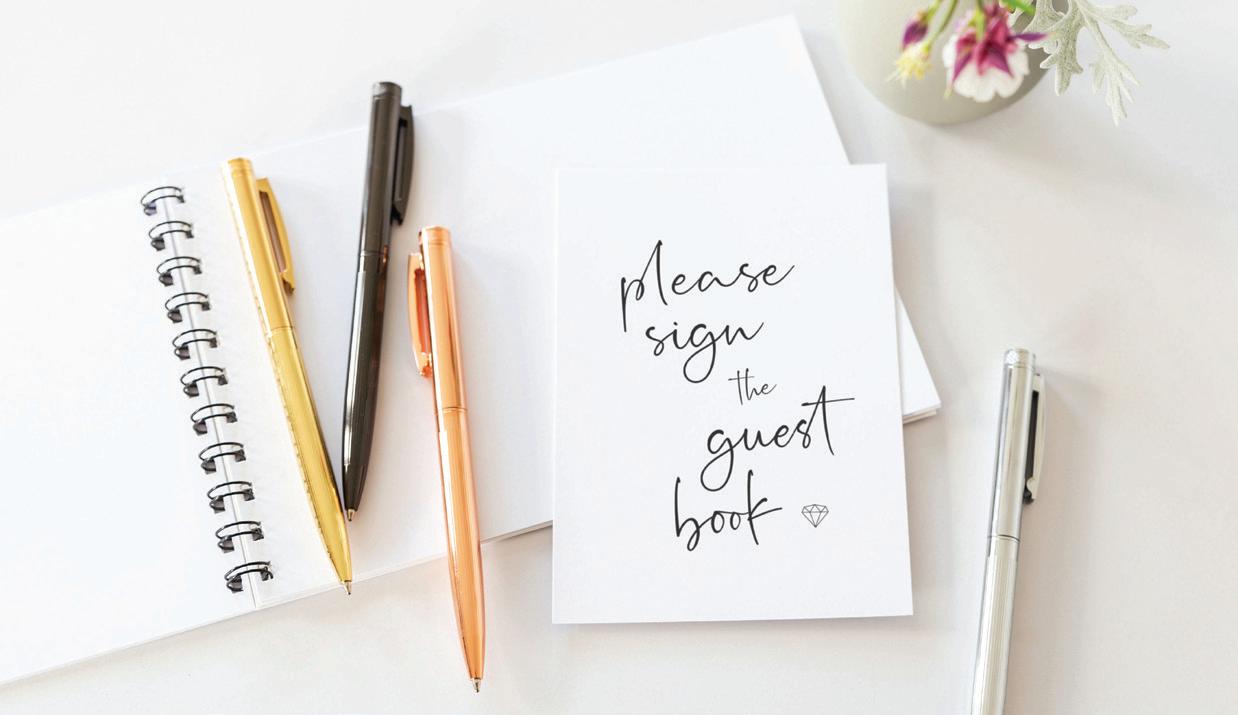 please
sign
the
guest
book